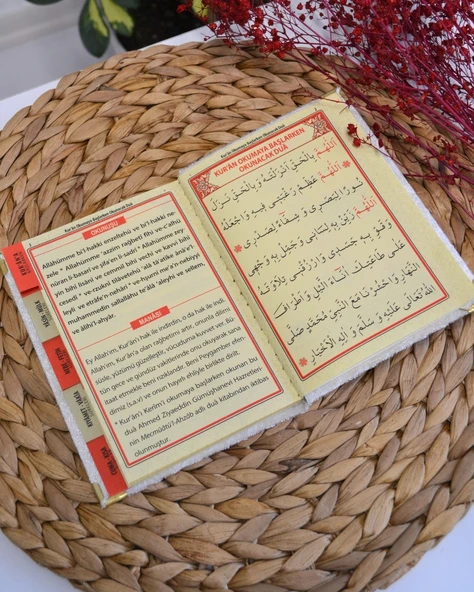 Kur'ân Okumaya Başlarken Okunacak Duâ
OKUNUŞU
Allahümme bi'l-hakkı enzeltehû ve bi'l-hakkı ne-
zele * Allahümme 'azzim rağbetî fîhi ve-c'alhü
nûran li-basarî ve şifâen li sadrî * Allahümme zey-
yin bihî lisânî ve cemmil bihî vechî ve kavvi bihî
cesedî * ve rzuknî tilâvetehû 'alâ tâ'atike ânâe'l-
leyli ve etrâfe'n-nehâr * ve'nfa'nî
muhammedin sallallâhu te'âlâ 'aleyhi ve sellem,
ve âlihi'l-ahyâr.
MANÂSI
Ey Allah'ım, Kur'ân'ı hak ile indirdin, o da hak ile indi.
Ey Allah'ım, Kur'ân'a olan rağbetimi artır, onunla dilimi
süsle, yüzümü güzelleştir, vücuduma kuvvet ver. Bü-
tün gece ve gündüz vakitlerinde onu okuyarak sana
itaat etmekle beni rızıklandır. Beni Peygamber efen-
dimiz (s.a.v) ve onun hayırlı ehliyle birlikte dirilt.
* Kur'ân'ı Kerîm'i okumaya başlarken okunan bu
duâ Ahmed Ziyaeddin Gümüşhanevi Hazretleri-
nin Mecmûatü'l-Ahzâb adlı duâ kitabından alıntı
olunmuştur.
Kur'ân Okumaya Başlarken Okunacak Duâ
KUR'ÂN OKUMAYA BAŞLARKEN
OKUNACAK DUÂ
اَللّٰهُمَّ بِالْحَقِّ اَنْزَلْتَهُ وَ بِالْحَقِّ نَزَلَ
اَللّٰهُمَّ عَظِّمْ رَغْبَتِي فِيهِ وَ اجْعَلْهُ
نُورًا لِبَصَرِي وَ شِفَآءً لِصَدْرِي
اَللّٰهُمَّ زَيِّنْ بِهِ لِسَانِي وَ جَمِّلْ بِهِ وَجْهِي
وَ قَوِّ بِهِ جَسَدِي وَ ارْزُقْنِي تِلَاوَتَهُ
عَلٰى طَاعَتِكَ اٰنَآءَ الَّيْلِ وَ اَطْرَافَ
النَّهَارِ وَ احْشُرْنِي مَعَ النَّبِيِّ مُحَمَّدٍ صَلَّى
اللهُ تَعَالٰى عَلَيْهِ وَ سَلَّمَ وَ اٰلِهِ الْاَخْيَارِ